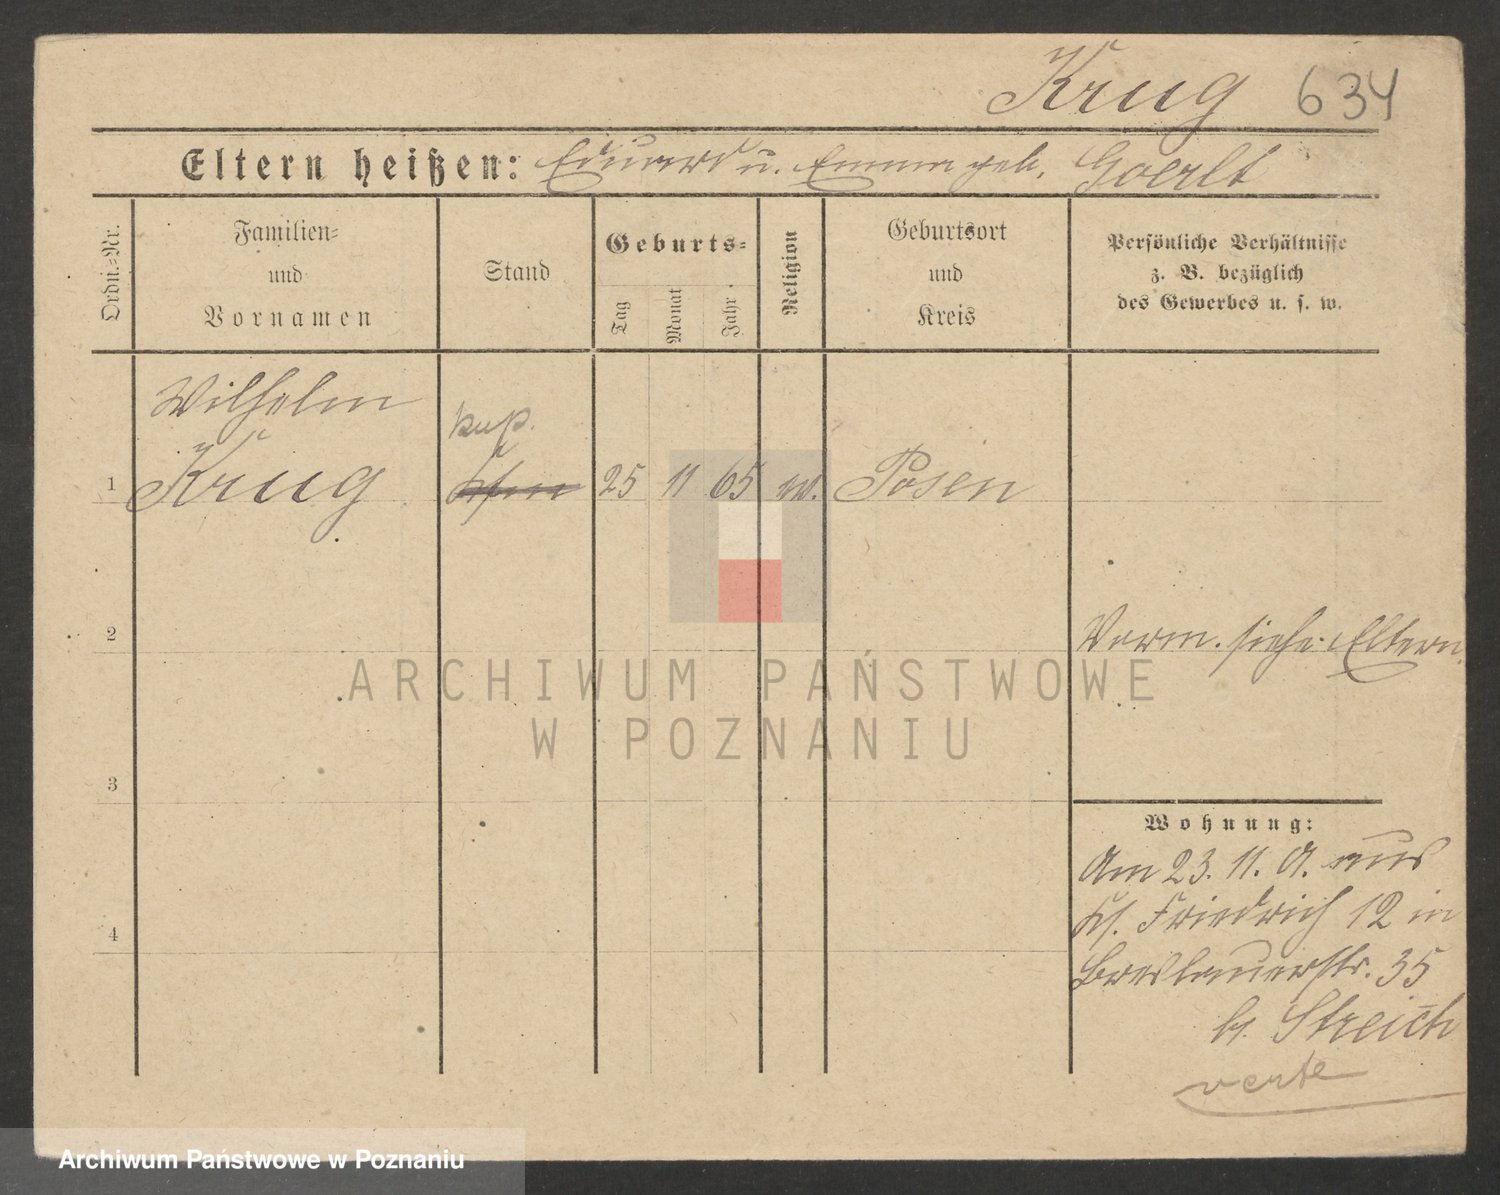 Krug 634
Eltern heißen: Eduard u. Emma geb. Goerlt
Ordn.-Nr.
Familien-
und
Vornamen
Stand
Geburts-
Tag
Monat
Jahr
Religion
Geburtsort
und
Kreis
Persönliche Verhältnisse
z. B. bezüglich
des Gewerbes u. s. w.
Wilhelm
1 Krug Kfm 25 11 65 ev. Posen
2
Verm. siehe Eltern.
3
Wohnung:
Am 23. 11. 9. aus
Kl. Friedrich 12 in
4
Breslauerstr. 35
b. Streich
verte
ARCHIWUM PAŃSTWOWE
W POZNANIU
Archiwum Państwowe w Poznaniu